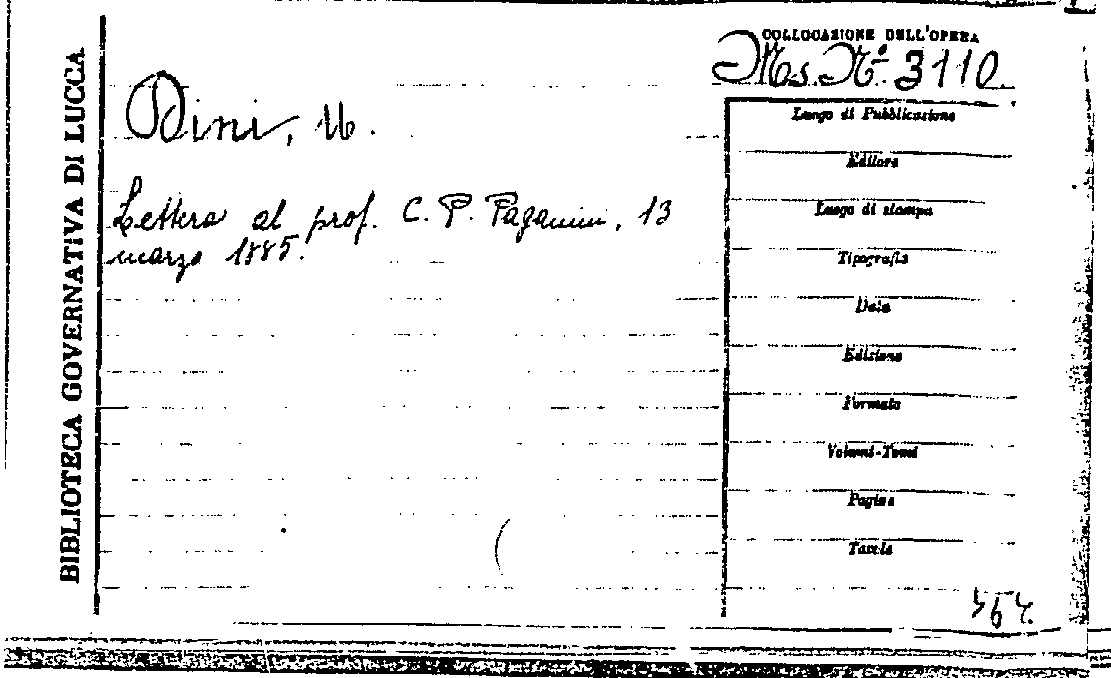 BIBLIOTECA GOVERNATIVA DI LUCCA
COLLOCAZIONE DELL'OPERA
Ms. N.º 3110
Dini, U.
Lettera al prof. C. P. Paganini, 13
marzo 1885.
Luogo di Pubblicazione
Editore
Luogo di stampa
Tipografia
Data
Edizione
Formato
Volumi-Tomi
Pagine
Tavole